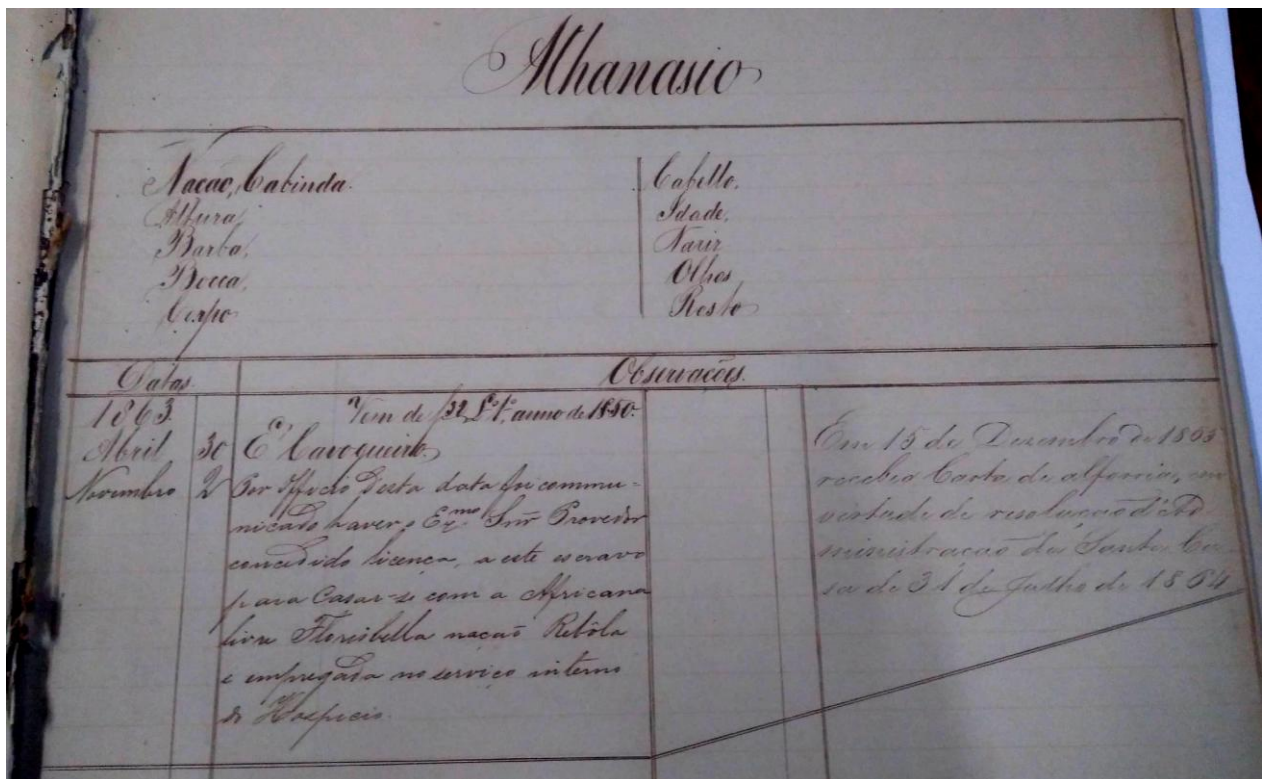 Athanasio
Nação, Cabinda.
Altura,
Barba,
Bocca,
Corpo
Cabello,
Idade,
Nariz
Olhos
Rosto
Datas.
Observações.
1863.
Vem de f 32 L.º 1.º, anno de 1850.
Abril 30 E' Cavoqueiro.
Novembro 2 Por Officio desta data foi commu-
nicado haver o Ex.mo Snr Provedor
concedido licença, a este escravo
para Casar-se com a Africana
livre Florisbella nação Rebôla
e empregada no serviço interno
do Hospicio.
Em 15 de Dezembro de 1865
recebeo Carta de alforria, em
virtude de resolução d'Ad
ministração da Santa Ca-
sa de 31 de Julho de 1864